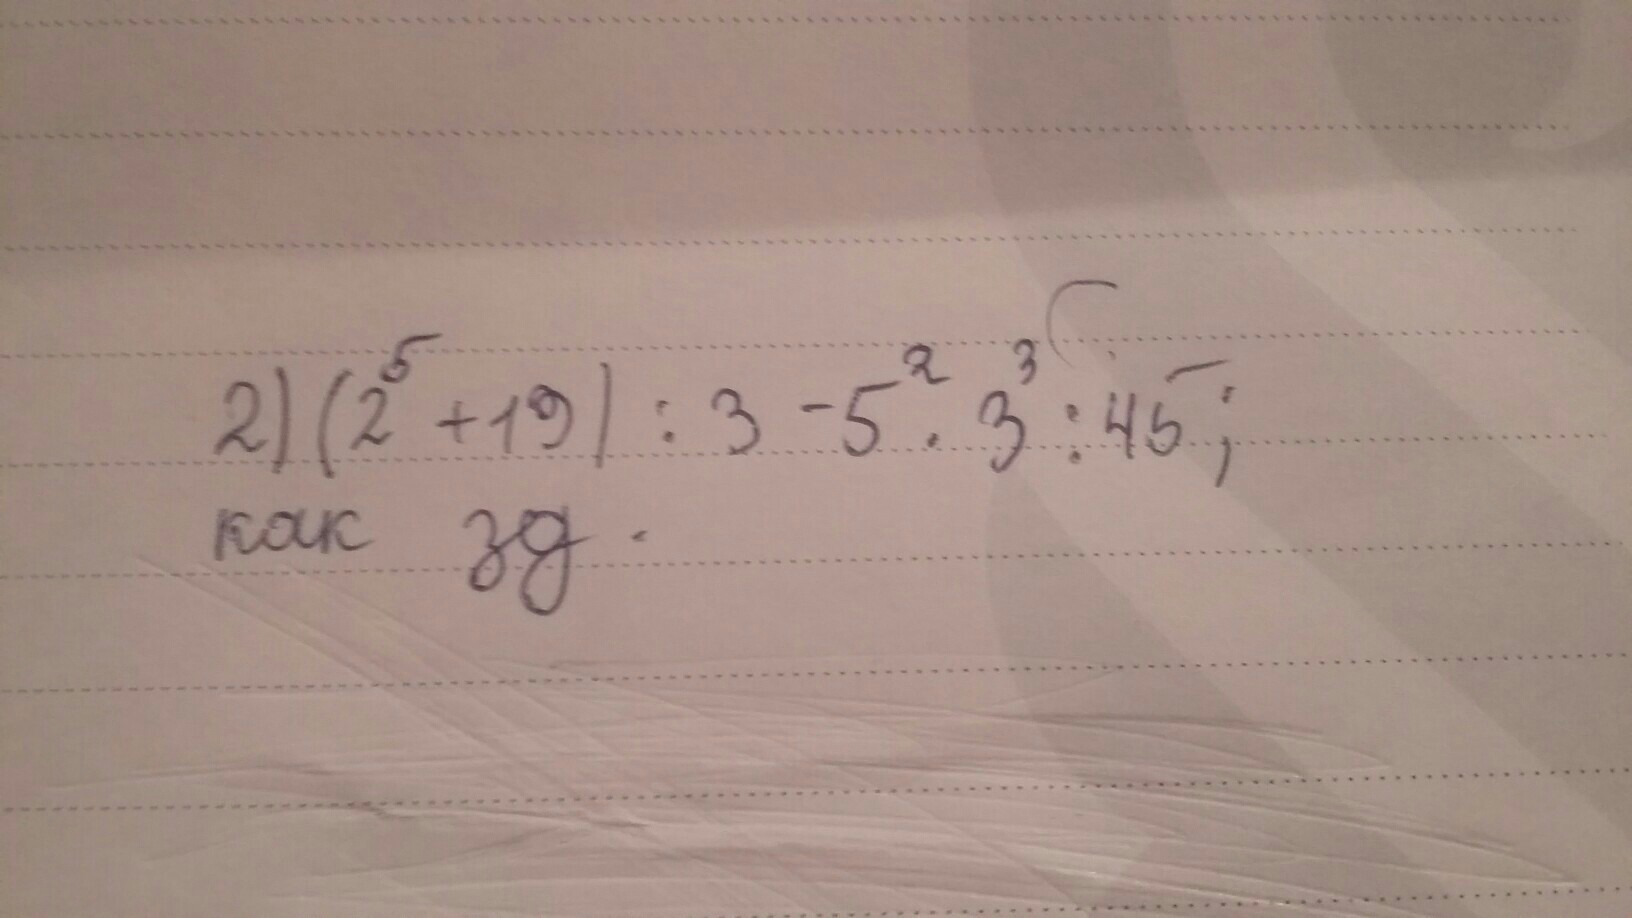 2) (2⁵ + 19) : 3 - 5² · 3³ : 45;
как зд.